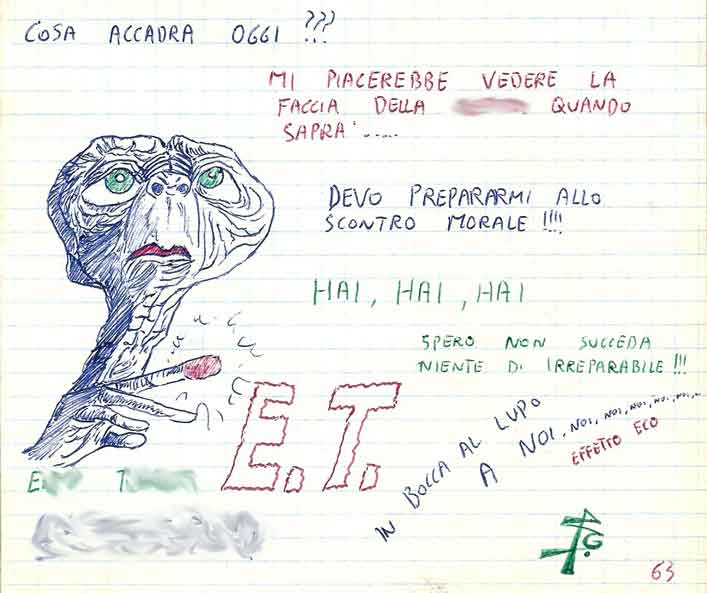 COSA ACCADRA OGGI ???
MI PIACEREBBE VEDERE LA
FACCIA DELLA QUANDO
SAPRA'.....
DEVO PREPARARMI ALLO
SCONTRO MORALE !!!!
HAI, HAI, HAI
SPERO NON SUCCEDA
NIENTE DI IRREPARABILE !!!
E.T.
IN BOCCA AL LUPO
A NOI, NOI, NOI, NOI, NOI, NOI, NOI...
EFFETTO ECO
63